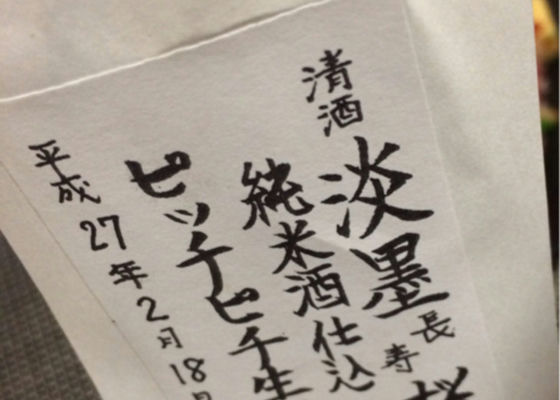 清酒
淡墨
長寿桜
純米酒仕込
ピッチピチ生
平成27年2月18日